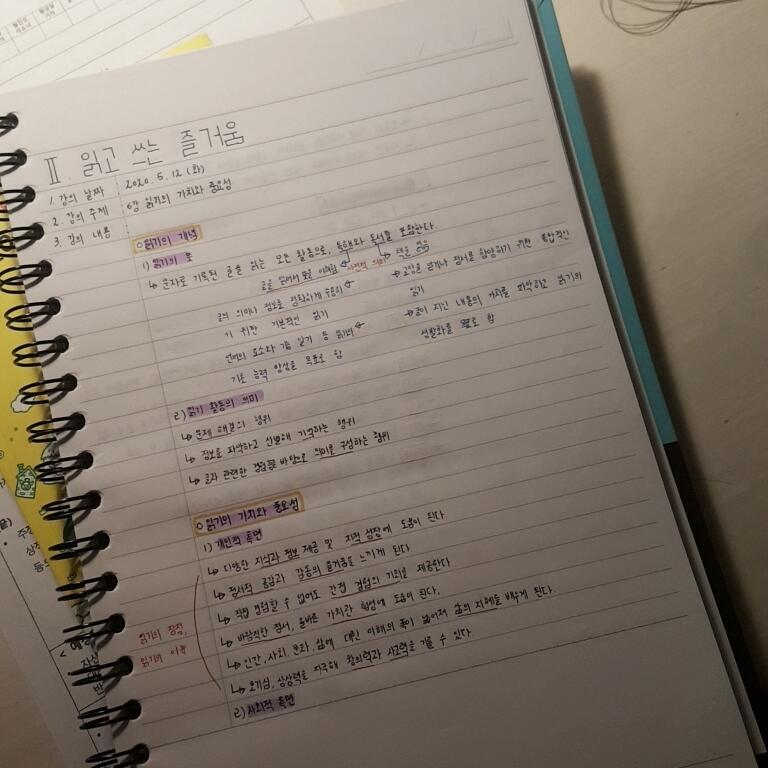 Ⅱ. 읽고 쓰는 즐거움
1. 강의 날짜 2020. 5. 12 (화)
2. 강의 주제 6강 읽기의 가치와 중요성
3. 강의 내용
○ 읽기의 개념
1) 읽기의 뜻
↳ 문자로 기록된 글을 읽는 모든 활동으로, 독해와 독서를 포함한다.
글을 읽어서 뜻을 이해함 사전적 의미 책을 읽음
글의 의미나 정보를 정확하게 수용하
기 위한 기본적인 읽기
교양을 쌓거나 정서를 함양하기 위한 통합적인
읽기
언어의 요소와 기능 읽기 등 읽기의
기초 능력 향상을 목표로 함
글이 지닌 내용의 가치를 파악하고 읽기의
생활화를 목표로 함
2) 읽기 활동의 의미
↳ 문제 해결의 행위
↳ 정보를 파악하고 선별해 기억하는 행위
↳ 글과 관련한 경험을 바탕으로 의미를 구성하는 행위
○ 읽기의 가치와 중요성
1) 개인적 측면
↳ 다양한 지식과 정보 제공 및 지적 성장에 도움이 된다.
↳ 정서적 공감과 감동의 즐거움을 느끼게 된다
↳ 직접 경험할 수 없어도 간접 경험의 기회를 제공한다
↳ 바람직한 정서, 올바른 가치관 형성에 도움이 된다.
↳ 인간, 사회, 문화, 삶에 대한 이해의 폭이 넓어져 삶의 지혜를 배우게 된다.
↳ 호기심, 상상력을 자극해 창의력과 사고력을 기를 수 있다.
읽기의 장점,
읽기의 이유
2) 사회적 측면